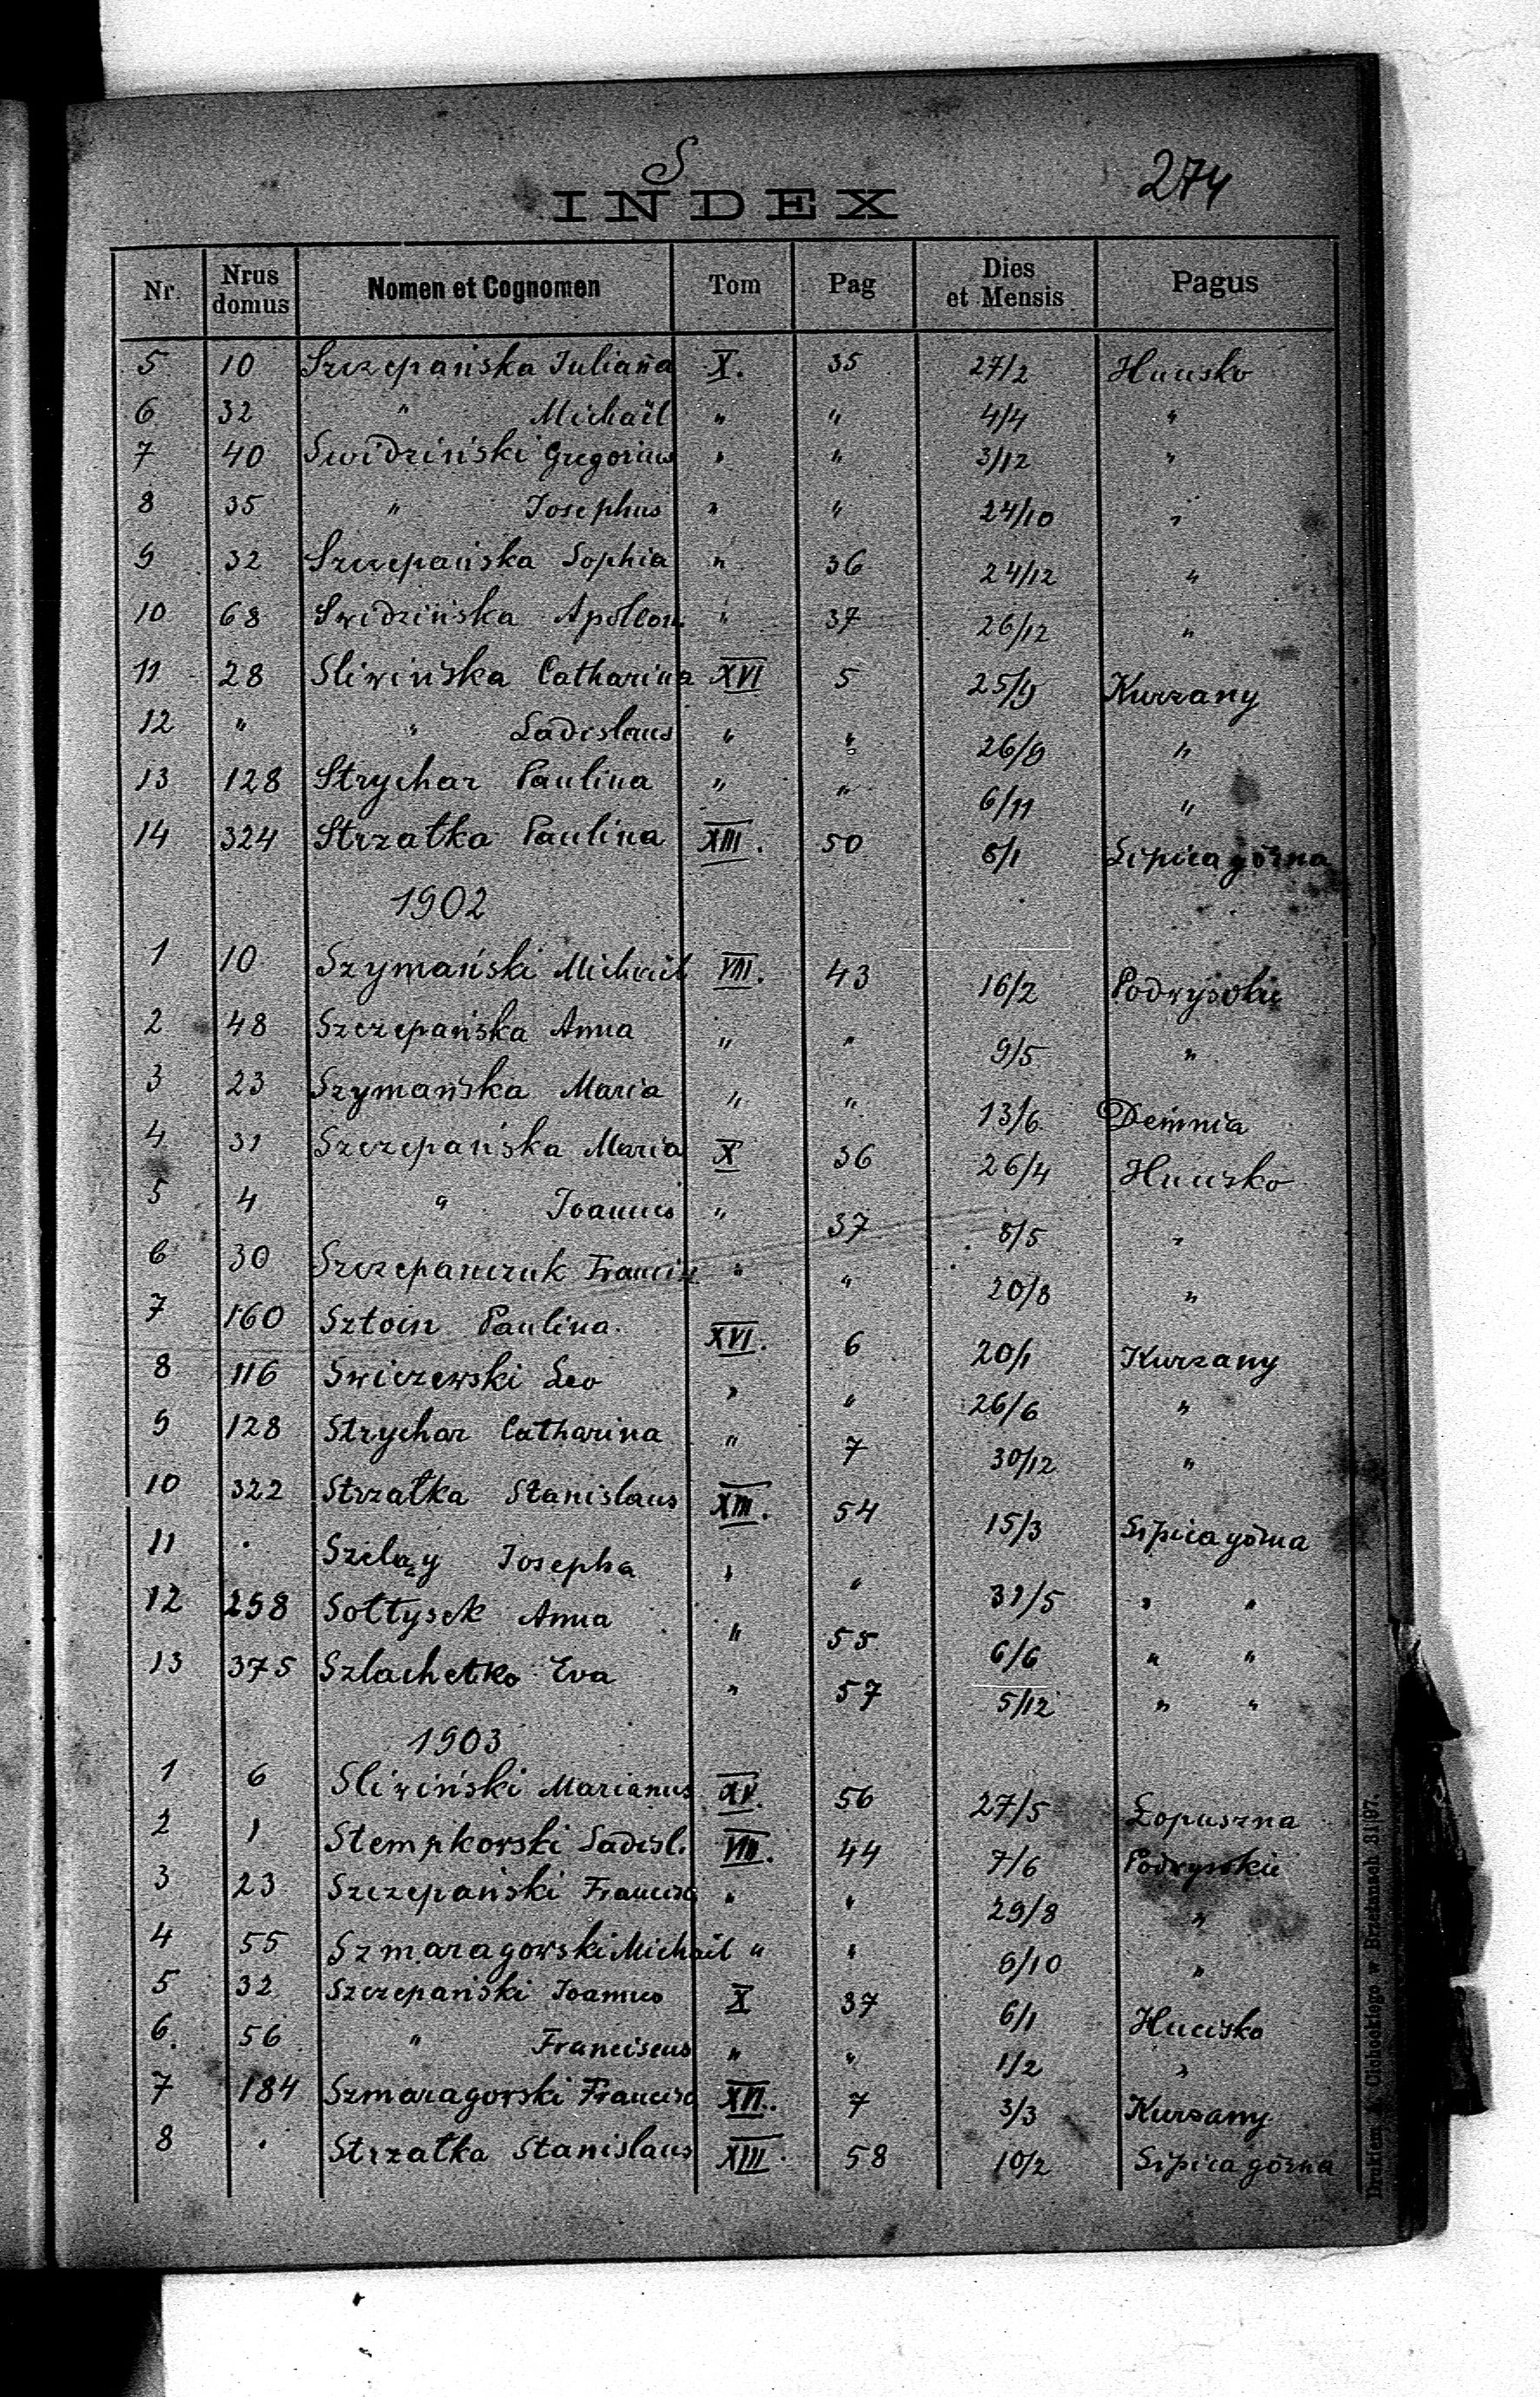 S
274
INDEX
Nr. Nrus domus Nomen et Cognomen Tom Pag Dies et Mensis Pagus
5 10 Szczepańska Juliana X. 35 27/2 Hucisko
6 32 " Michaël " " 4/4 "
7 40 Swidziński Gregorius " " 3/12 "
8 35 " Josephus " " 24/10 "
9 32 Szczepańska Sophia " 36 24/12 "
10 68 Swidzińska Apollon. " 37 26/12 "
11 28 Sliwińska Catharina XVI 5 25/9 Kurzany
12 " " Ladislaus " " 26/9 "
13 128 Strychar Paulina " " 6/11 "
14 324 Strzałka Paulina XIII. 50 8/1 Lipica górna
1902
1 10 Szymański Michaël VIII. 43 16/2 Podwysokie
2 48 Szczepańska Anna " " 9/5 "
3 23 Szymańska Maria " " 13/6 Demnia
4 31 Szczepańska Maria X 36 26/4 Hucisko
5 4 " Joannes " 37 8/5 "
6 30 Szczepanczuk Francis " " 20/8 "
7 160 Sztoin Paulina. XVI. 6 20/1 Kurzany
8 116 Swiczewski Leo " " 26/6 "
9 128 Strychar Catharina " 7 30/12 "
10 322 Strzałka Stanislaus XIII. 54 15/3 Lipica górna
11 . Szeląg Josepha " " 31/5 " "
12 258 Sołtysek Anna " 55 6/6 " "
13 375 Szlachetko Eva " 57 5/12 " "
1903
1 6 Sliwiński Marianus XV. 56 27/5 Łopuszna
2 1 Stempkorski Ladisl. VIII. 44 7/6 Podwysokie
3 23 Szczepański Francisc " " 29/8 "
4 55 Szmaragowski Michaël " " 6/10 "
5 32 Szczepański Joannes X 37 6/1 Hucisko
6. 56 " Franciscus " " 1/2 "
7 184 Szmaragorski Francisc XVI. 7 3/3 Kurzany
8 . Strzałka Stanislaus XIII. 58 10/2 Lipica górna
Drukiem A. Cichockiego w Brzeżanach 31|97.